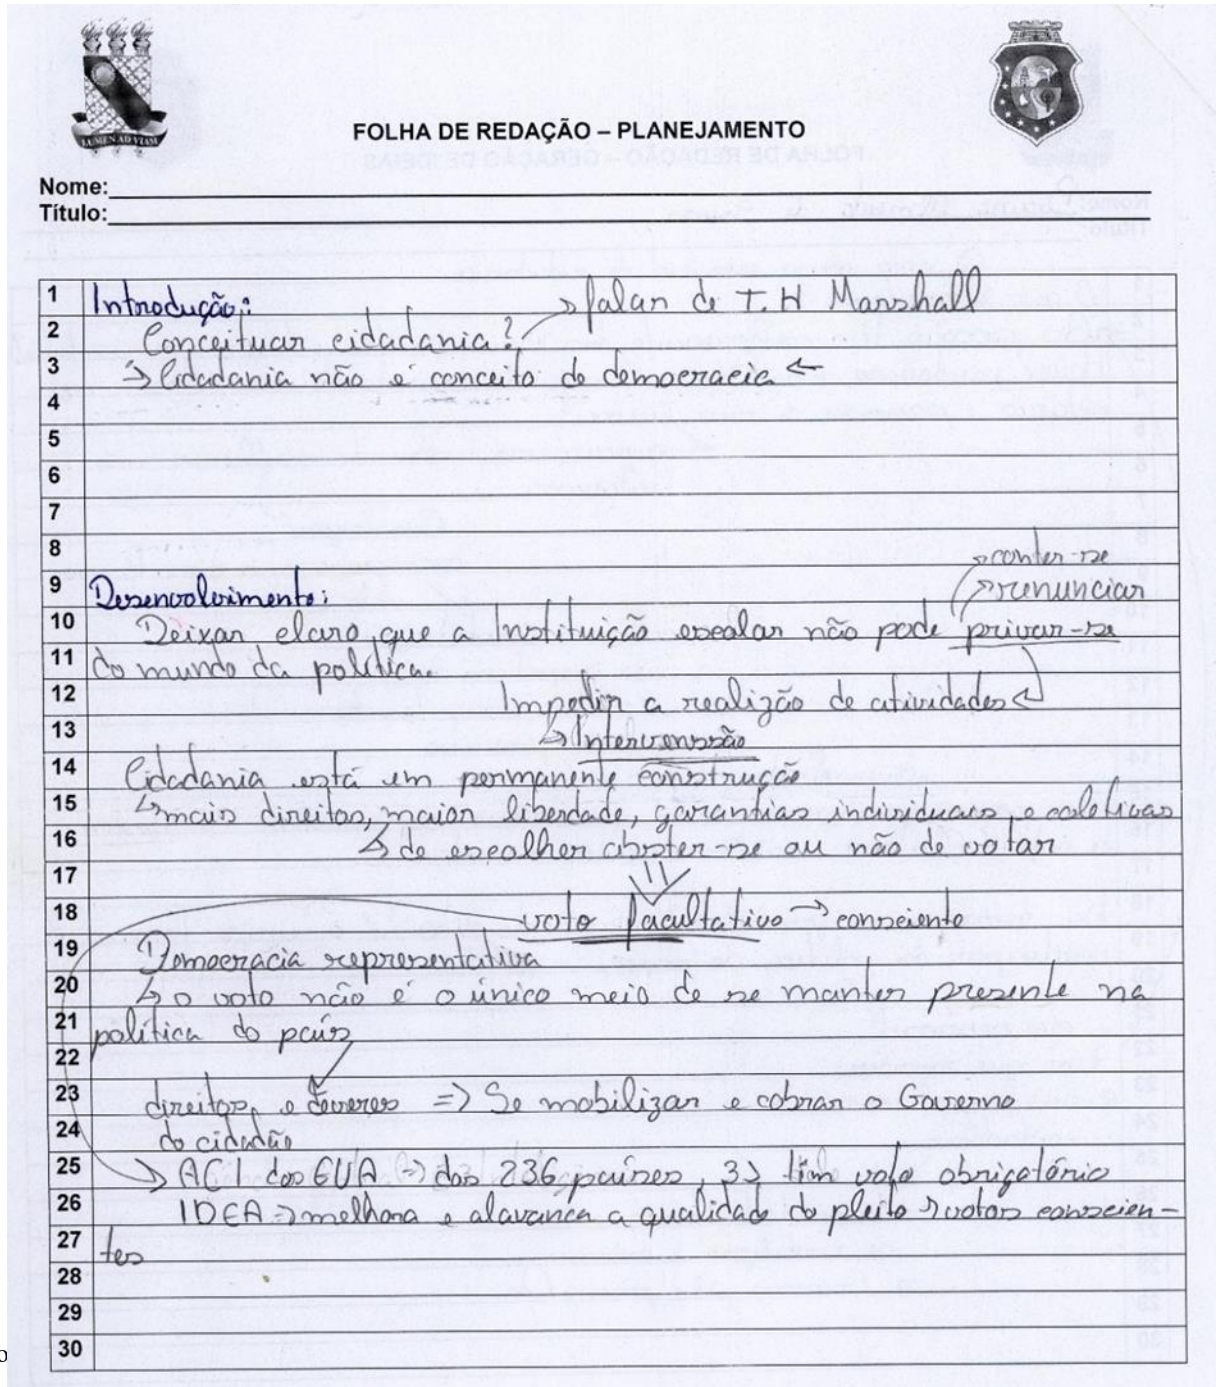 LUMEN AD VIAM
FOLHA DE REDAÇÃO – PLANEJAMENTO
Nome:
Título:
1 Introdução: → falar de T.H Marshall
2 Conceituar cidadania?
3 → Cidadania não é conceito de democracia ←
4
5
6
7
8 → conter-se
9 Desenvolvimento: → renunciar
10 Deixar claro, que a Instituição escolar não pode privar-se
11 do mundo da política.
12 Impedir a realizão de atividades ↲
13 ↳ Intervenssão
14 Cidadania está em permanente construção
15 ↳ mais direitos, maior liberdade, garantias individuais, e coletivas
16 ↳ de escolher abster-se ou não de votar
17
18 voto facultativo → consciente
19 Democracia representativa
20 ↳ o voto não é o único meio de se manter presente na
21 política do país
22
23 direitos, e deveres => Se mobilizar e cobrar o Governo
24 do cidadão
25 → ACI dos EUA → dos 236 países, 3 têm voto obrigatório
26 IDEA → melhora e alavanca a qualidade do pleito → votos conscien-
27 tes
28
29
30